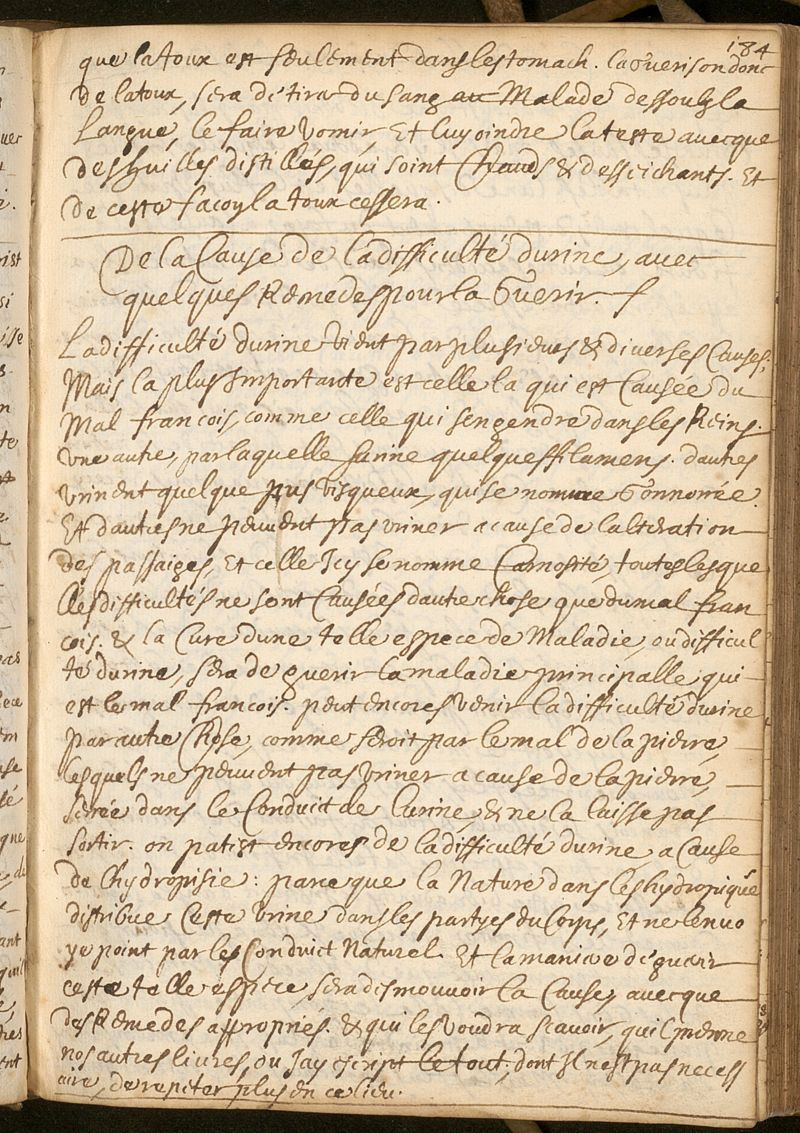 184
que la toux est seulement dans lestomach. la Guerison donc
de la toux, sera de tirar du sang au Malade dessoubz la
Langue, le faire vomir, Et luy oindre la teste avecque
des huilles distillés, qui soint Chauds & desseichants. Et
de ceste facoy la toux cessera.
De la Cause de la difficulté durine, avec
quelques Remedes pour la Guerir.
La difficulté durine vient par plusieurs & diverses Causes,
Mais la plus Importante est celle la qui est Causée du
Mal francois, comme celle qui sengendre dans les Reins.
une autre, par laquelle surine quelques filamens. dautres
urinent quelque pus visqueux, qui se nomme Gonnorrée.
Et dautres ne peuvent pas uriner a cause de lalteration
des passaiges, Et celle Icy se nomme Carnosité, toutes lesque
lles difficultés ne sont Causées dautre chose que du mal fran
cois. & la Cure dune telle espece de Maladie, ou difficul
té durine, sera de guerir la maladie principalle qui
est le mal francois. peut encores venir la difficulté durine
par autre Chose, comme seroit par le mal de la pierre,
lesquels ne peuvent pas uriner a cause de la pierre,
serrée dans le Conduict de lurine, & ne la laisse pas
sortir. on patist encores de la difficulté durine, a Cause
de lhydropisie: parce que la Nature dans les hydropiques
distribue Ceste urine dans les partyes du Corps, Et ne lenvo
ye point par les Conduict Naturel. Et la maniere de guerir
ceste telle espece, sera desmouvoir la Cause, avecque
des Remedes appropriés. & qui les voudra scavoir, qu'il prenne
nos autres livres, ou Jay escript le tout, dont Il nest pas necess
aire, de repeter plus en ce lieu.